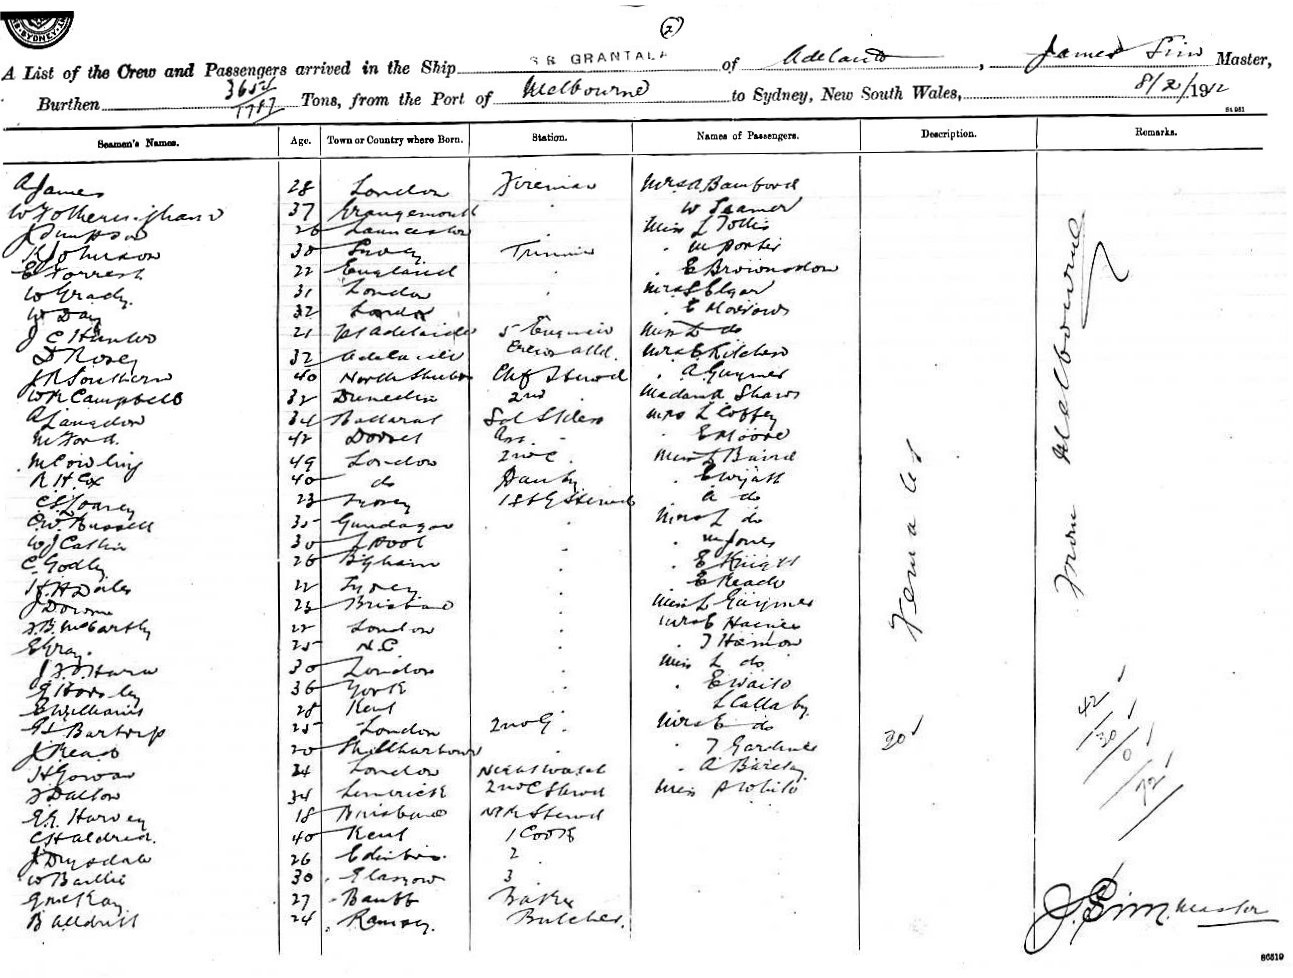 SYDNEY
(2)
A List of the Crew and Passengers arrived in the Ship S.S. GRANTALA of Adelaide, James Sim Master,
Burthen 3654/1787 Tons, from the Port of Melbourne to Sydney, New South Wales, 8/2/1912
Seamen's Names. Age. Town or Country where Born. Station. Names of Passengers. Description. Remarks.
A James 28 London Fireman Mrs A Bamford
W Fotheringham 37 Grangemouth " W Seamer
J Simpson 26 Launceston " Miss L Tottis
R Johnson 30 Sydney Trimmer " M Porter
E Forrest 22 England " " E Brownslow
W Grady. 31 London " Mrs S Elgar
W Day 32 London " E Morrows
J C Hunter 21 Pt Adelaide 5 Engineer Miss L do
D Rosey 32 Adelaide Mrs E Kitchen
J R Southern 40 North Shields Chf Steward " A Guymer
W R Campbell 32 Dunedin 2nd " Madam A Shaws
A Langdon 34 Ballarat Sal Stdess Mrs L Coffey
M Ford. 42 Dorset Ass. " " E Moore
M Cowling 49 London 2nd C. Miss L Baird
R H Cox 40 do Pantry " E Wyatt
C S Loarey 23 Sydney 1st G Steward " A do
C. W. Russell 35 Gundagai " Mrs L do
W J Catlin 30 L'Pool " " M Jones
C Godly 26 B'gham " " E Knight
H. H Doiles 22 Sydney " " E Reade
J Dorme 23 Brisbane " Miss L Guymer
J. B. McCarthy 22 London " Mrs E Haines
E Gray. 25 N.C " " J Harmon
J. F. O'Hara 30 London " Miss L do
G Horsley 36 York " " E Waits
E Williams 28 Kent " " L Callaby
G L Bartrop 25 London 2nd G. Mrs E do
J Read 20 Shellharbour " " J Gardner
H Gowan 34 London Nightwatch " A Barclay
J Dalton 34 Limerick 2nd C Steward Miss A White
E. E. Harvey 18 Brisbane Steward
C Haldred. 40 Kent 1 Cook
J Drysdale 26 Edinbro. 2 "
W Baillie 30 Glasgow 3 "
G McKay 27 Banff Baker
B Alldritt 24 Ramsey. Butcher.
Females
30
From Melbourne
42
30
0
72
J. Sim. Master
86519